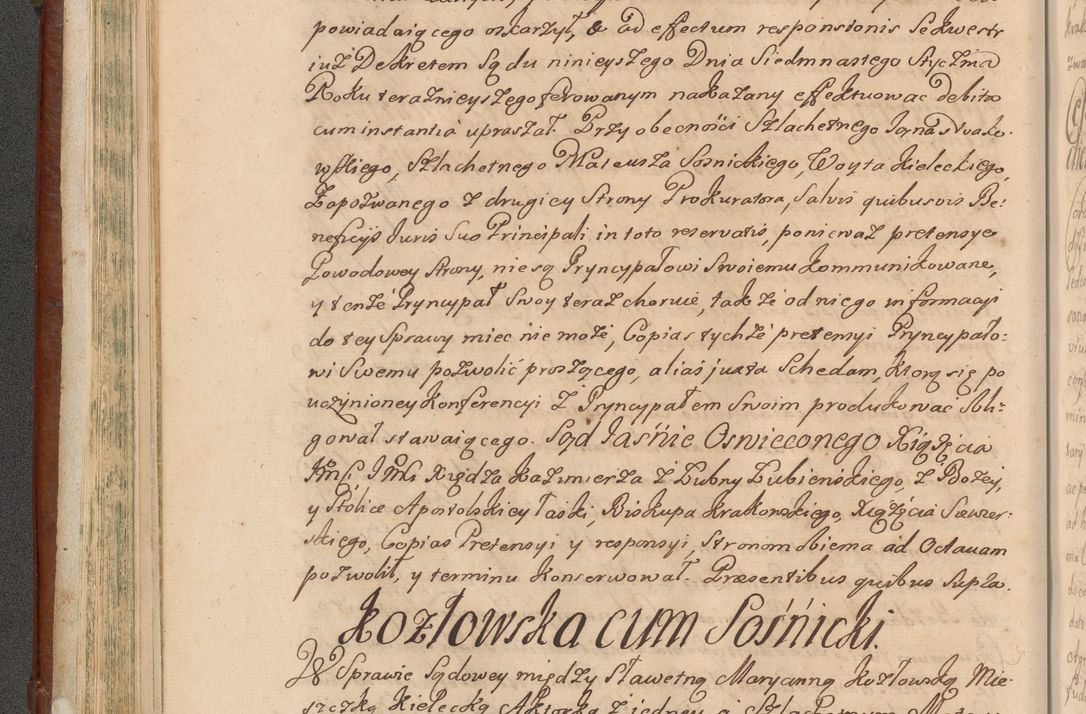 powiadaiącego oskarżył, & ad effectum responsionis Sekwestr
iuż Dekretem Sądu ninieyszego Dnia Siedmnastego Stycznia
Roku teraznieyszego ferowanym nakazany effektuowac debita
cum instantia upraszał. Przy obecnosci Szlachetnego Jgna
wskiego, Szlachetnego Mateusza Sosnickiego, Woyta Kieleckiego,
Zapozwanego z drugiey Strony Prokuratora, Salvis quibusvis Be:
neficijs Juris Suo Principali in toto reservatis, poniewaz pretensye
Powodowey Strony, nie są Pryncypałowi Swoiemu kommunikowane,
y tenże Pryncypał Swoy teraz choruie, tak że od niego informacyi
do tey Sprawy miec nie może, Copias tychże pretensyi Pryncypało:
wi Swemu pozwolić proszącego, alias juxta Schedam, ktorą się po
uczynioney Konferencyi z Pryncypałem Swoim produkować obli:
gował stawaiącego. Sąd Jaśnie Oswieconego Xiążęcia
Jmći, Xiędza Kazimierza z Łubny Łubieńskiego, z Bożey,
y Stolice Apostolskiey Łaski, Biskupa Krakowskiego, Xiążęcia Siewier:
skiego, Copias Pretensyi y responsyi, Stronom obiema ad Octavam
pozwolił, y terminu konserwował. Præsentibus quibus supra.
Kozłowska cum Sośnicki.
W Sprawie Sądowey między Sławetną Maryanną Kozłowską Mie:
szczką Kielecką Aktorką z iedney, a Szlachetnym